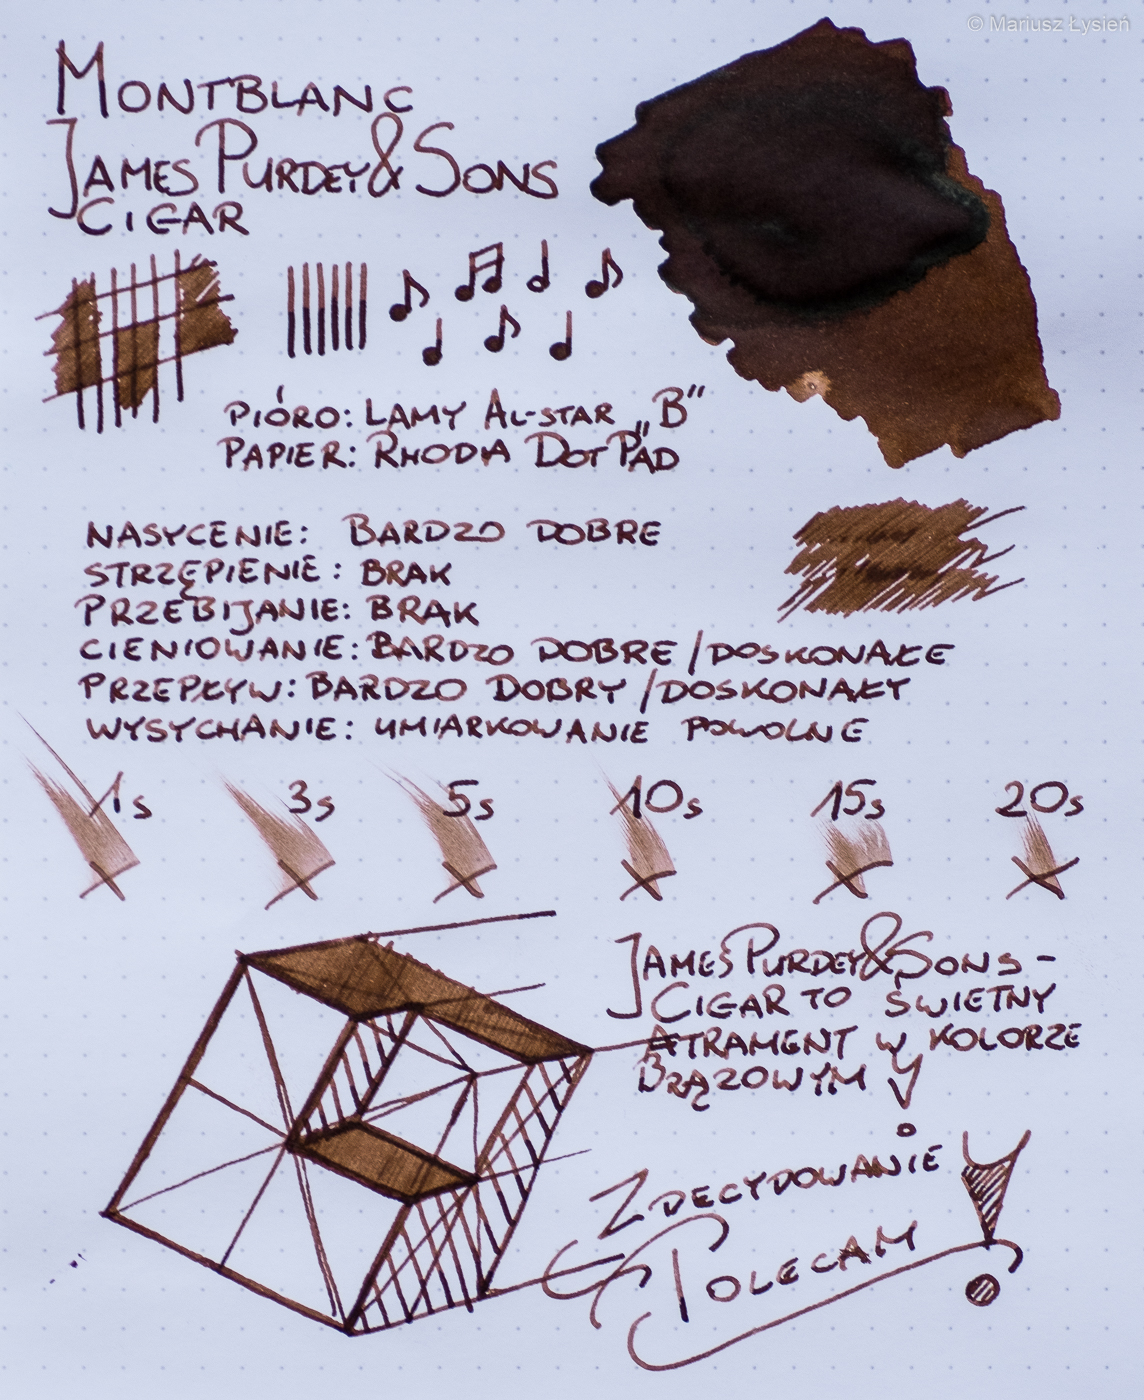 © Mariusz Łysień
MONTBLANC
JAMES PURDEY & SONS
CIGAR
PIÓRO: LAMY AL-STAR „B”
PAPIER: RHODIA DOTPAD
NASYCENIE: BARDZO DOBRE
STRZĘPIENIE: BRAK
PRZEBIJANIE: BRAK
CIENIOWANIE: BARDZO DOBRE / DOSKONAŁE
PRZEPŁYW: BARDZO DOBRY / DOSKONAŁY
WYSYCHANIE: UMIARKOWANIE POWOLNE
1s 3s 5s 10s 15s 20s
JAMES PURDEY & SONS -
CIGAR TO ŚWIETNY
ATRAMENT W KOLORZE
BRĄZOWYM!
ZDECYDOWANIE
POLECAM!